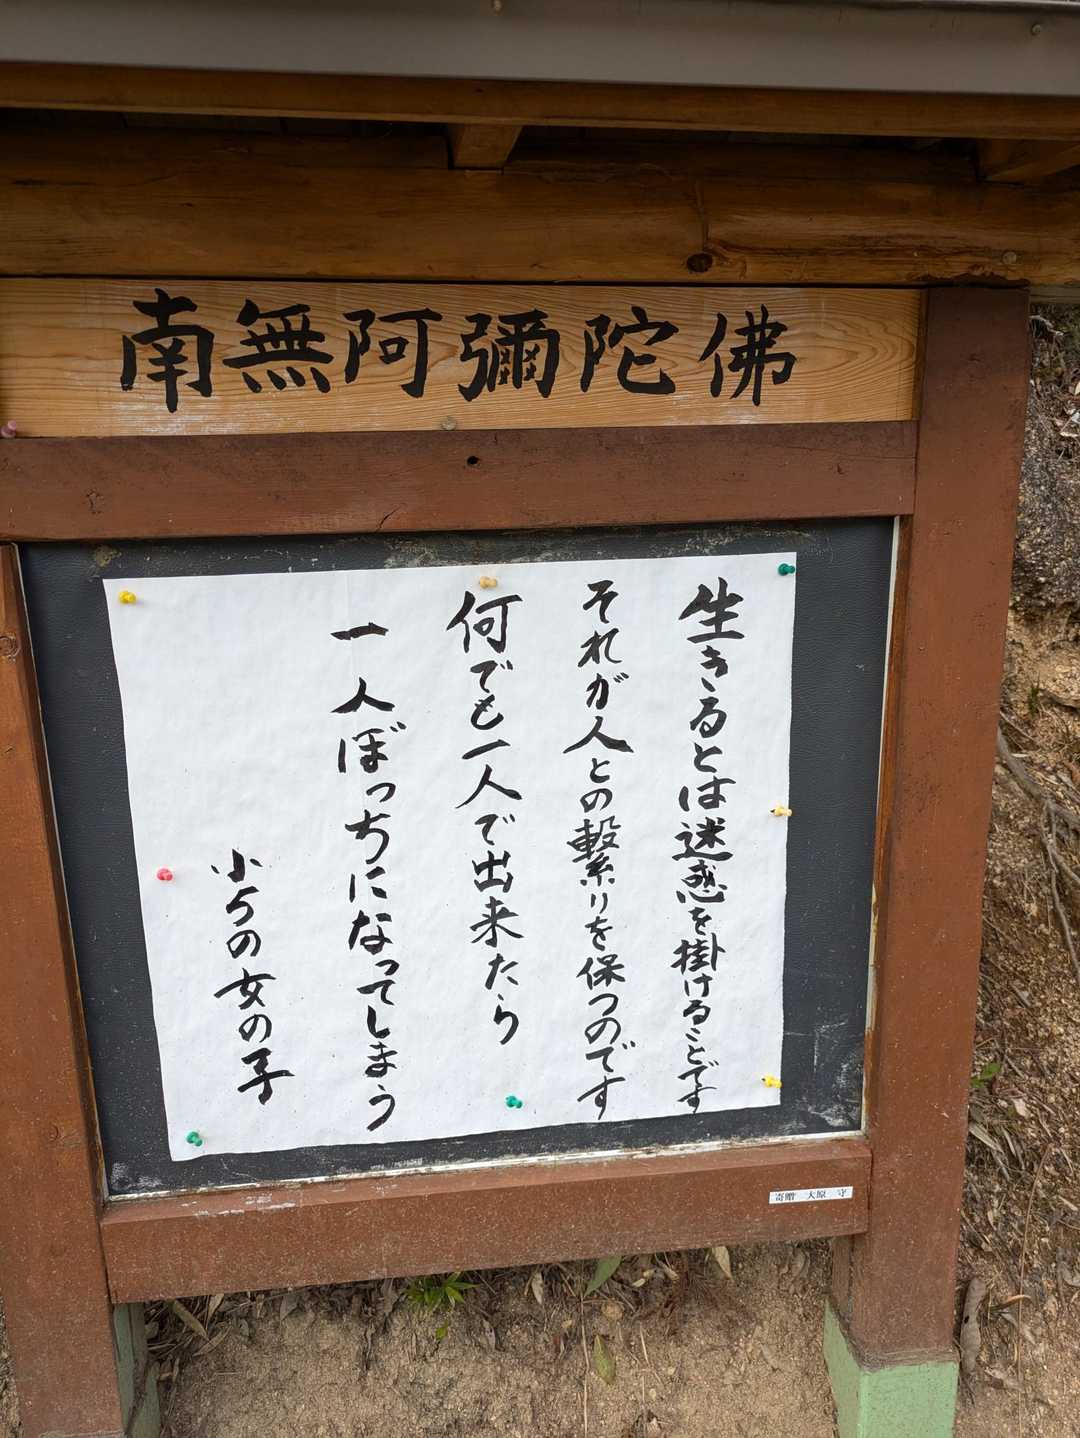 南無阿彌陀佛
生きるとは迷惑を掛けることです
それが人との繋りを保つのです
何でも一人で出来たら
一人ぼっちになってしまう
小5の女の子
寄贈 大原 守